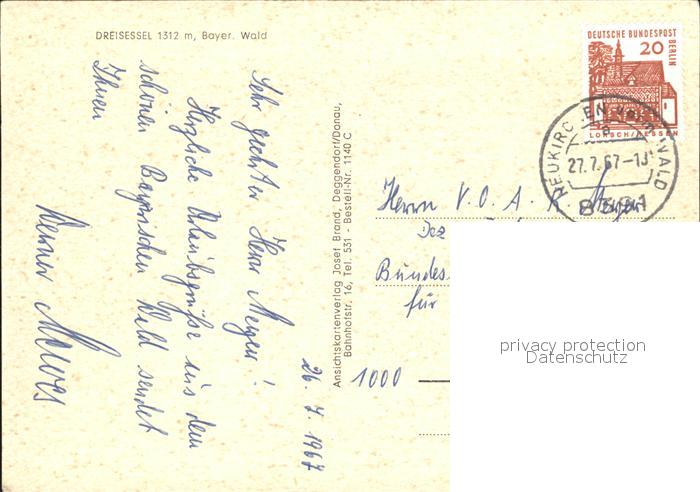 DREISESSEL 1312 m, Bayer. Wald
Sehr geehrter Herr Meyer!
Herzliche Urlaubsgrüße aus dem
schönen Bayrischen Wald sendet
Ihnen
Werner
26. 7. 1967
Ansichtskartenverlag Josef Brand, Deggendorf/Donau,
Bahnhofstr. 16, Tel. 531 - Bestell-Nr. 1140 C
DEUTSCHE BUNDESPOST
BERLIN
20
LORSCH/HESSEN
27.7.67-
Herrn V. O. A. R. Meyer
Bundes
für
1000
privacy protection
Datenschutz